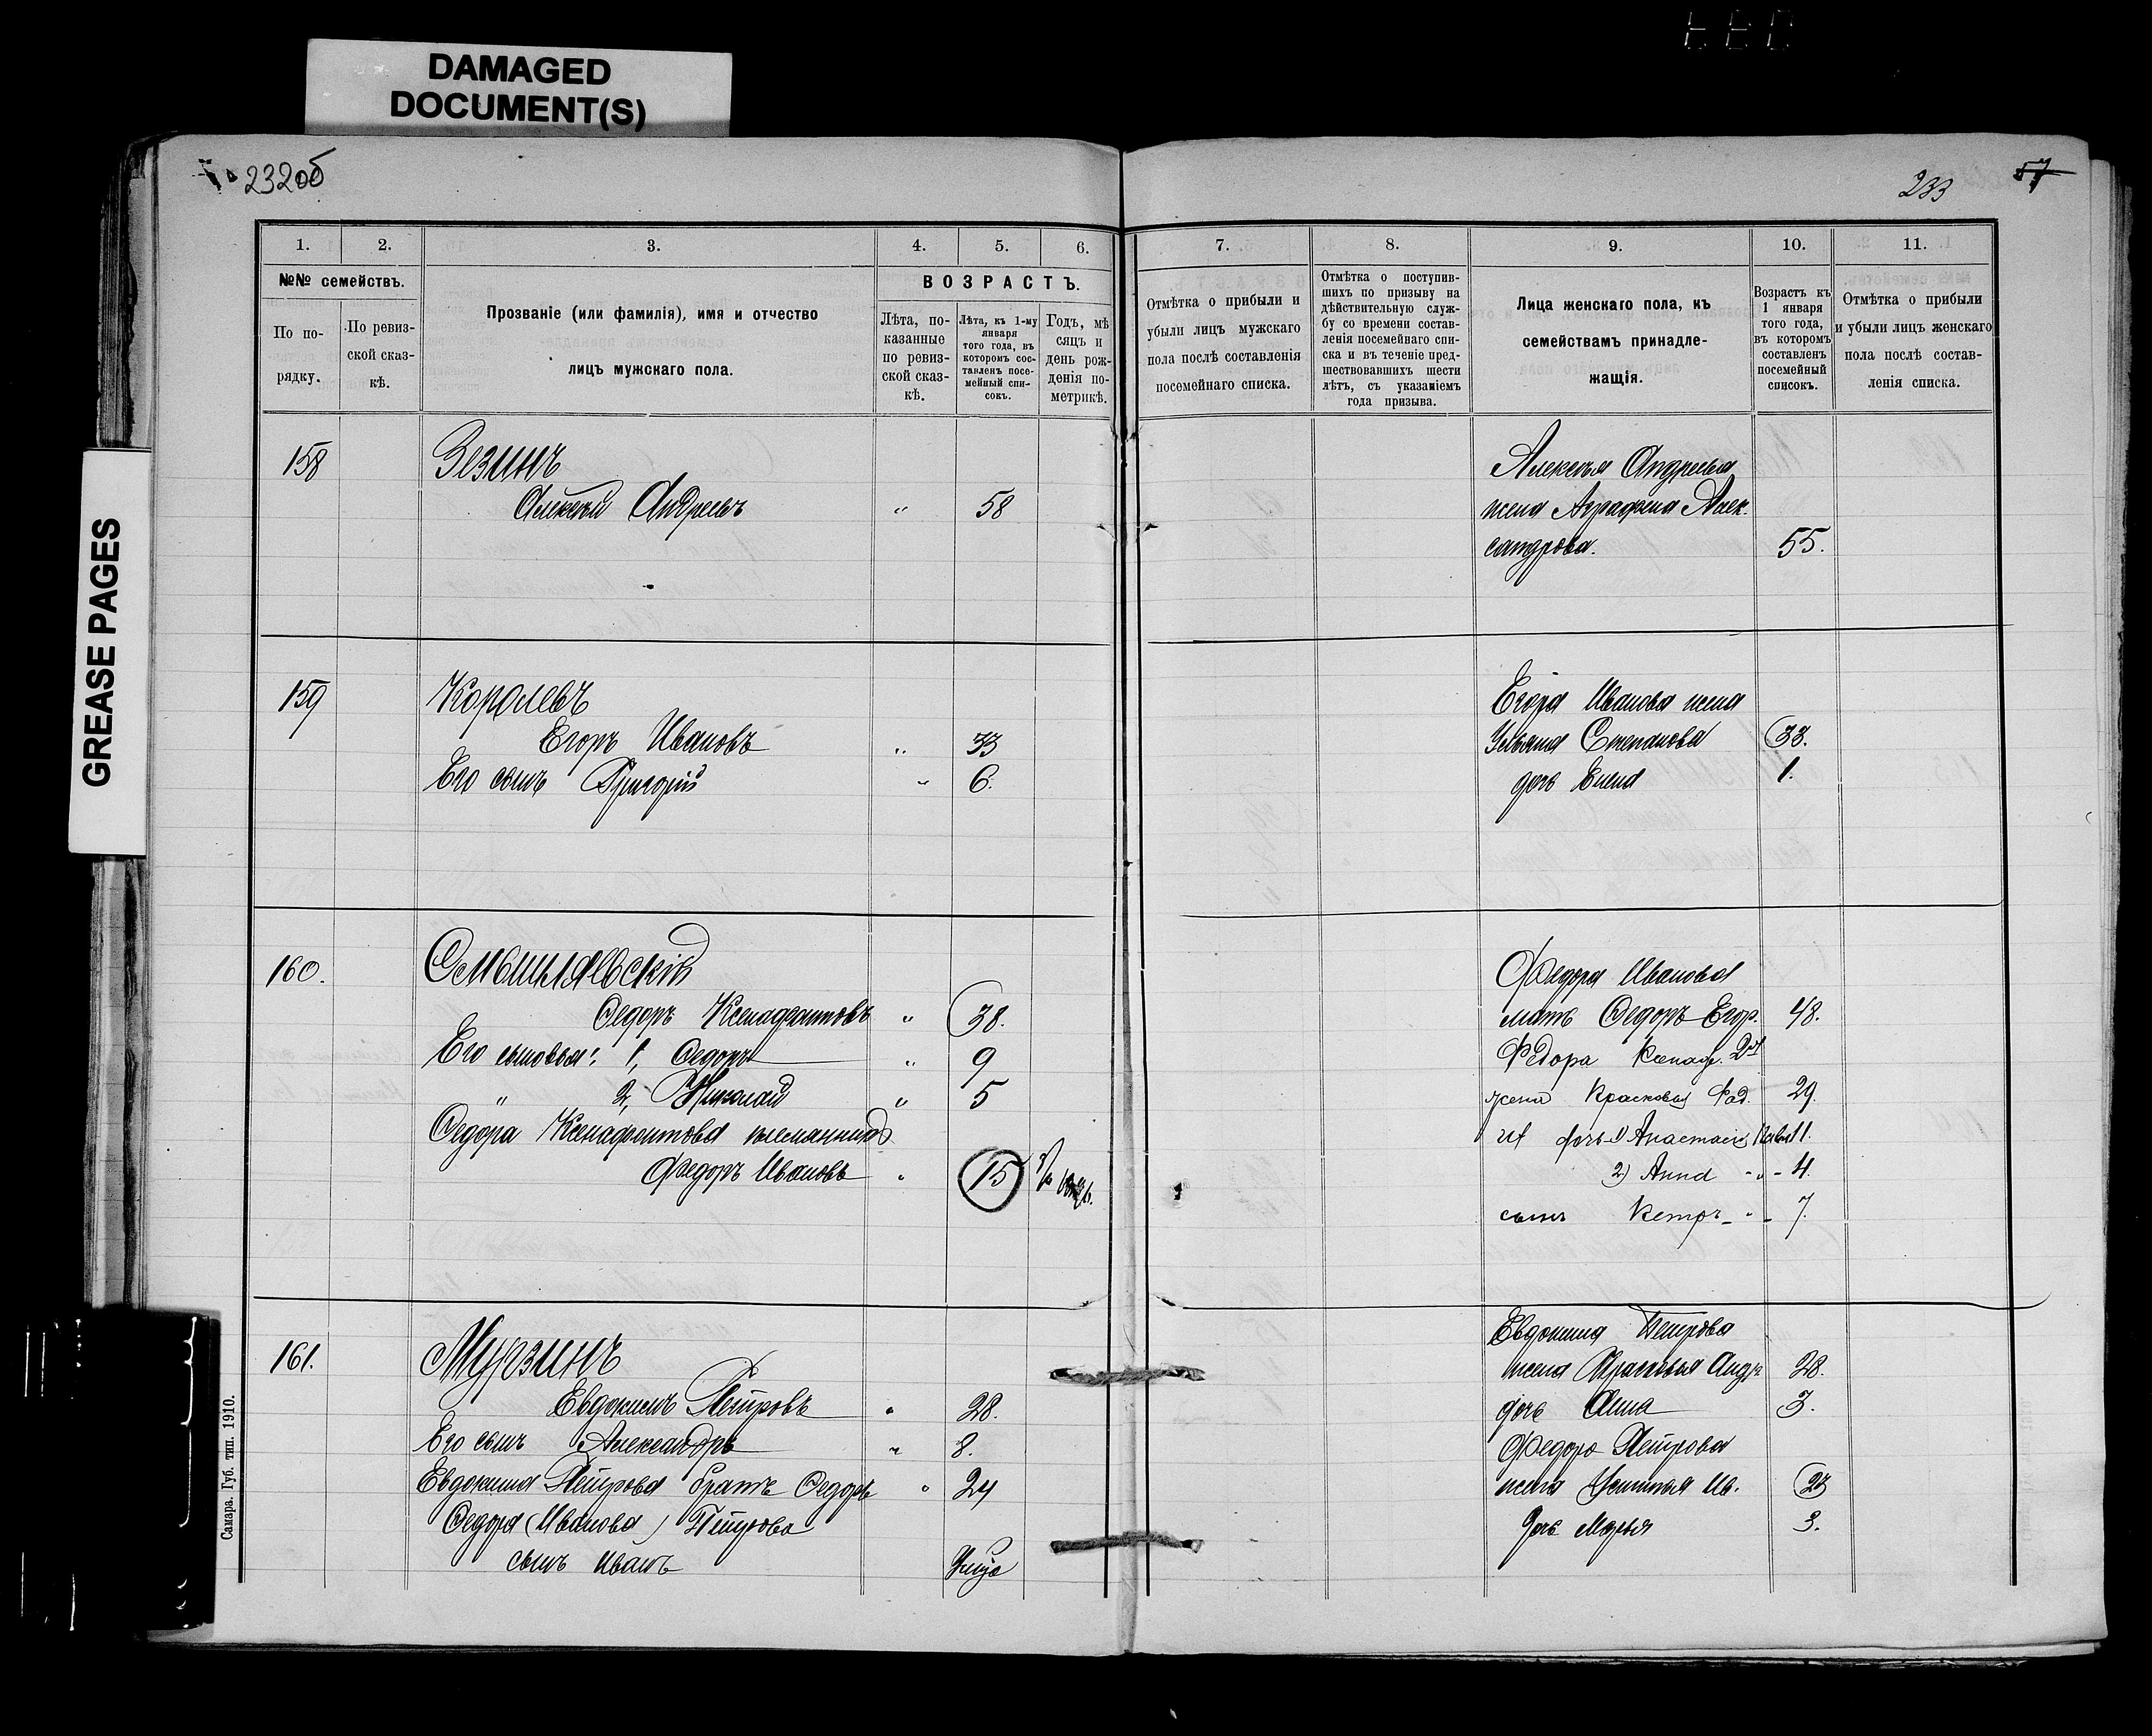 DAMAGED
DOCUMENT(S)
GREASE PAGES
232об
233
57
1. 2. 3. 4. 5. 6.
№№ семействъ.
По по-
рядку.
По ревиз-
ской сказ-
кѣ.
Прозваніе (или фамилія), имя и отчество
лицъ мужскаго пола.
ВОЗРАСТЪ.
Лѣта, по-
казанные
по ревиз-
ской сказ-
кѣ.
Лѣта, къ 1-му
января
того года, въ
которомъ сос-
тавленъ посе-
мейный спи-
сокъ.
Годъ, мѣ
сяцъ и
день рож-
денія по-
метрикѣ.
158
Зезинъ
Алексѣй Андреевъ " 58
159
Королевъ
Егоръ Ивановъ " 33
Его сынъ Григорій " 6.
160.
Федоръ Ксенафонтовъ " 38.
Его сыновья: 1, Федоръ " 9
" 2, Николай " 5
Федора Ксенафонтова племянникъ
Федоръ Ивановъ " 15
161.
Мурзинъ
Евдокимъ Петровъ " 28.
Его сынъ Александръ " 8.
Евдокима Петрова братъ Федоръ " 24
Федора (Иванова) Петрова
сынъ Иванъ
Самара. Губ. тип. 1910.
7. 8. 9. 10. 11.
Отмѣтка о прибыли и
убыли лицъ мужскаго
пола послѣ составленія
посемейнаго списка.
Отмѣтка о поступив-
шихъ по призыву на
дѣйствительную служ-
бу со времени состав-
ленія посемейнаго спи-
ска и въ теченіе пред-
шествовавшихъ шести
лѣтъ, съ указаніемъ
года призыва.
Лица женскаго пола, къ
семействамъ принадле-
жащія.
Возрастъ къ
1 января
того года,
въ которомъ
составленъ
посемейный
списокъ.
Отмѣтка о прибыли
и убыли лицъ женскаго
пола послѣ состав-
ленія списка.
Алексѣя Андреева
жена Аграфена Алек.
сандрова. 55.
Егора Иванова жена
Ульяна Степанова 33.
дочь Елена 1.
Федора Иванова
мать Федоръ Егор. 48.
Федора Ксенаф. 2я
жена Прасковья Фад. 29.
дочь 1) Анастасія 11.
2) Анна " - 4.
сынъ Петръ - " - 7.
Евдокима Петрова
жена Прасковья Андр. 28.
дочь Анна 3.
Федора Петрова
жена Устинья Ив. 23
дочь Марья 3.